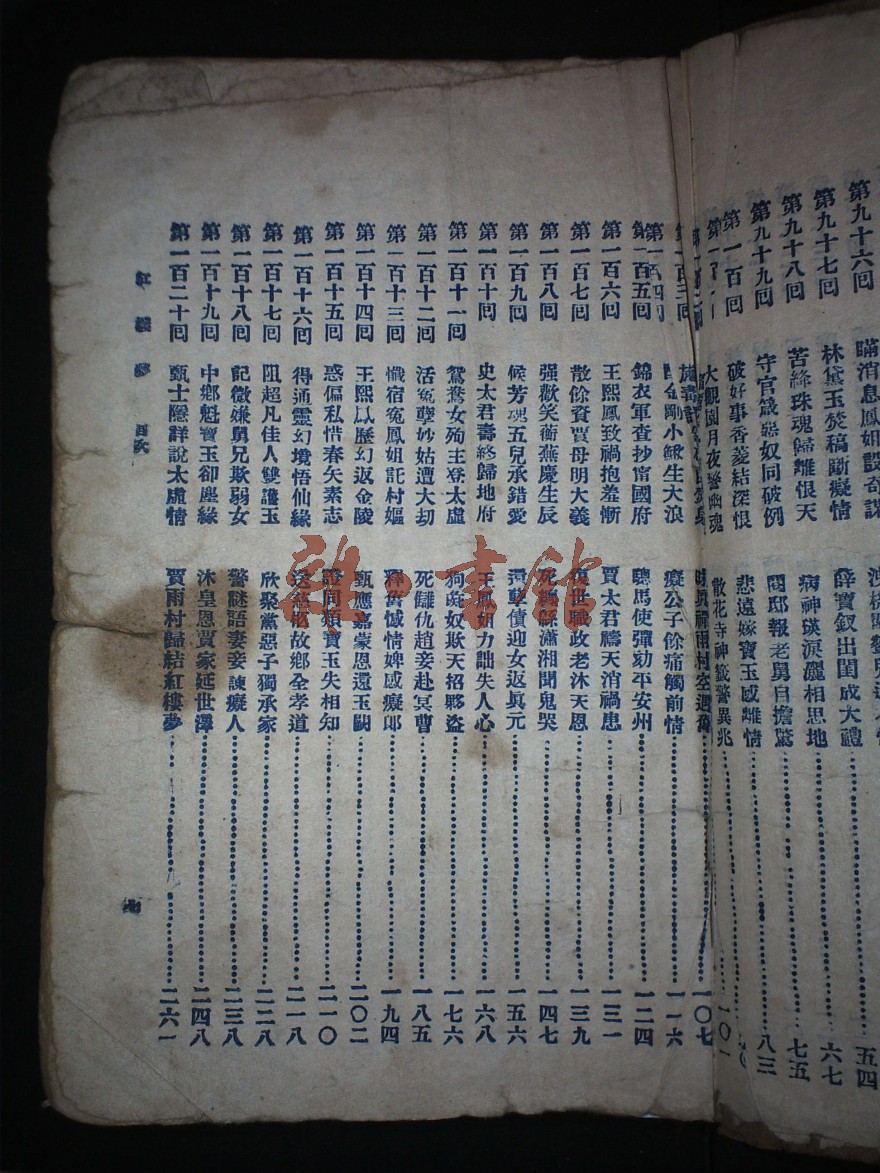 第九十六回 瞞消息鳳姐設奇謀 五四
第九十七回 林黛玉焚稿斷癡情 薛寶釵出閨成大禮 六七
第九十八回 苦絳珠魂歸離恨天 病神瑛淚灑相思地 七五
第九十九回 守官箴惡奴同破例 閱邸報老舅自擔驚 八三
第一百回 破好事香菱結深恨 悲遠嫁寶玉感離情
大觀園月夜警幽魂 散花寺神籤警異兆 一〇一
一〇七
第一百四回 金剛小鰍生大浪 癡公子餘痛觸前情 一一六
第一百五回 錦衣軍查抄甯國府 驄馬使彈劾平安州 一二四
第一百六回 王熙鳳致禍抱羞慚 賈太君禱天消禍患 一三一
第一百七回 散餘資賈母明大義 復世職政老沐天恩 一三九
第一百八回 强歡笑蘅蕪慶生辰 死纏綿瀟湘聞鬼哭 一四七
第一百九回 候芳魂五兒承錯愛 還孽債迎女返眞元 一五六
第一百十回 史太君壽終歸地府 王鳳姐力詘失人心 一六八
第一百十一回 鴛鴦女殉主登太虛 狗彘奴欺天招夥盜 一七六
第一百十二回 活冤孽妙姑遭大劫 死讎仇趙妾赴冥曹 一八五
第一百十三回 懺宿冤鳳姐託村嫗 釋舊憾情婢感癡郎 一九四
第一百十四回 王熙鳳歷幻返金陵 甄應嘉蒙恩還玉闕 二〇二
第一百十五回 惑偏私惜春矢素志 證同類寶玉失相知 二一〇
第一百十六回 得通靈幻境悟仙緣 送慈柩故鄉全孝道 二一八
第一百十七回 阻超凡佳人雙護玉 欣聚黨惡子獨承家 二二八
第一百十八回 記微嫌舅兄欺弱女 警謎語妻妾諫癡人 二三八
第一百十九回 中鄉魁寶玉卻塵緣 沐皇恩賈家延世澤 二四八
第一百二十回 甄士隱詳說太虛情 賈雨村歸結紅樓夢 二六一
紅樓夢 目次 七